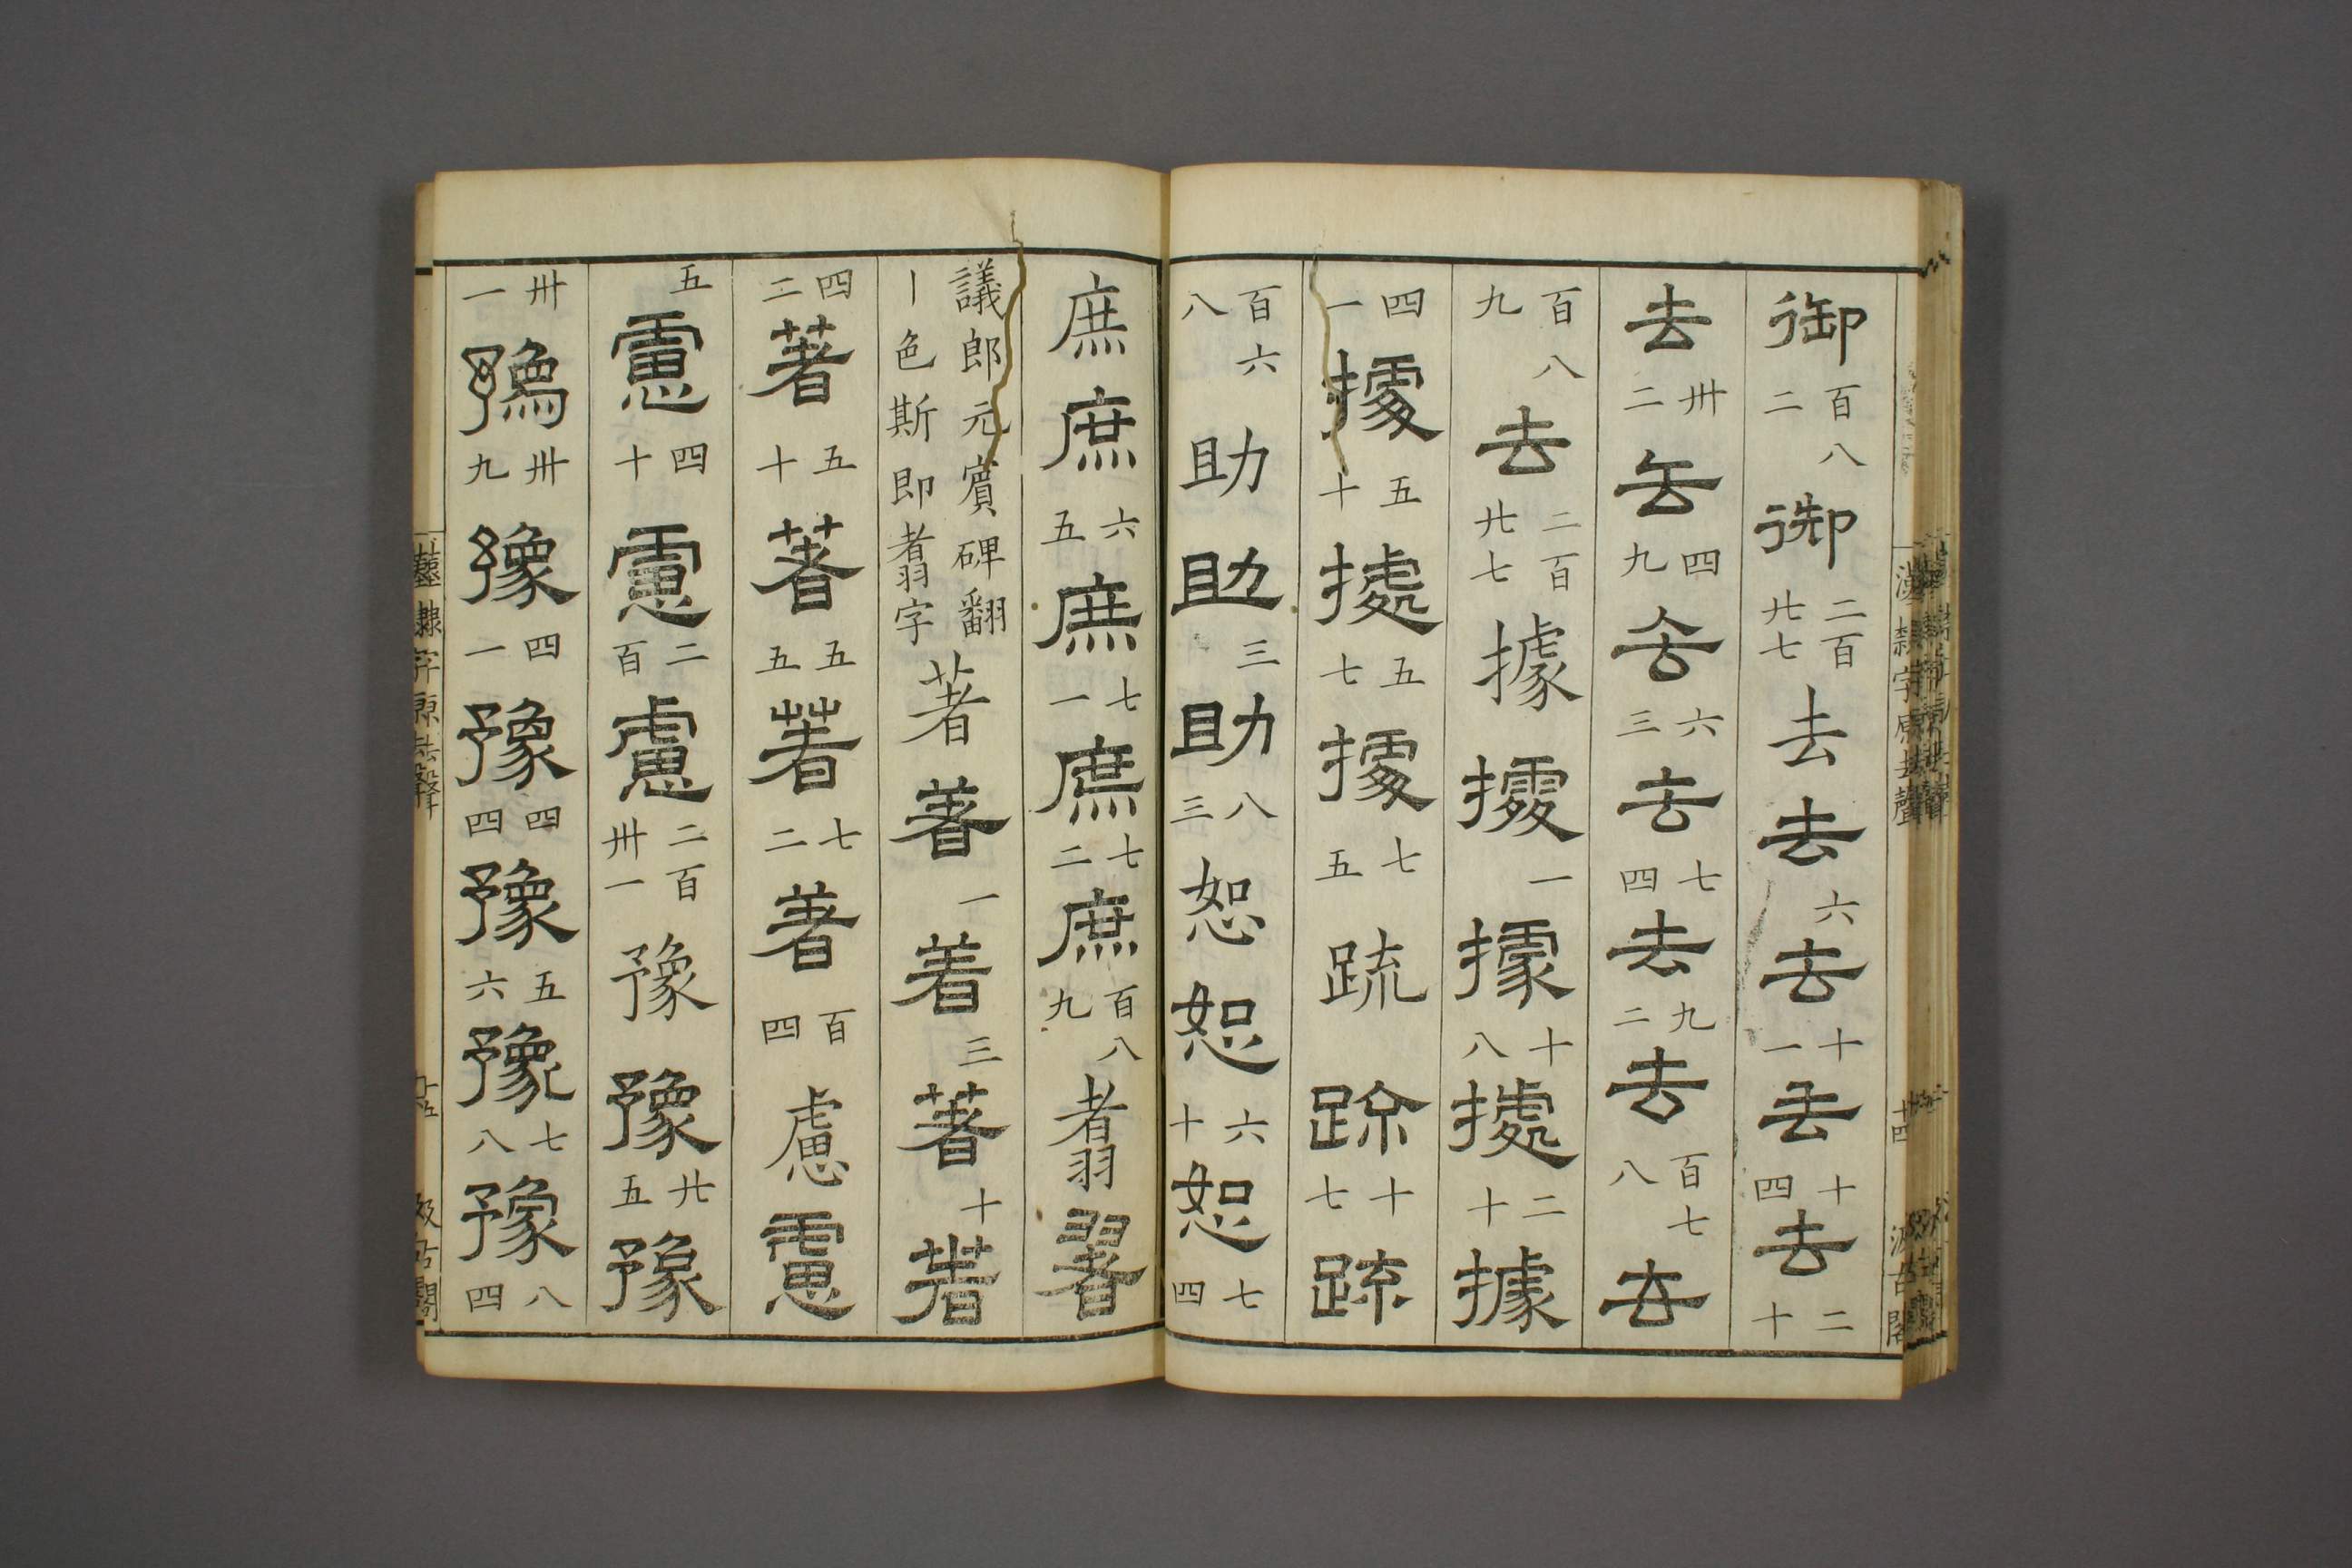 御二百八御二百廿七去去六去十一去十四去二十
去卅二去四九去六三去七四去九二去百七八去
百八九去二百廿七據據一據十八據二十據
四一據五十據五七據七五疏疏十七疏
百六八助助三助八三恕恕六十恕七四
庶庶六五庶七一庶七二庶百八九翥翥
議郎元賓碑翻丨色斯即翥字著著一著三著十著
四二著五十著五五著七二著百四慮慮
五慮四十慮二百慮二百卅一豫豫廿五豫
卅一豫卅九豫四一豫四四豫五六豫七八豫八四
漢隸字原去聲 十四 汲古閣